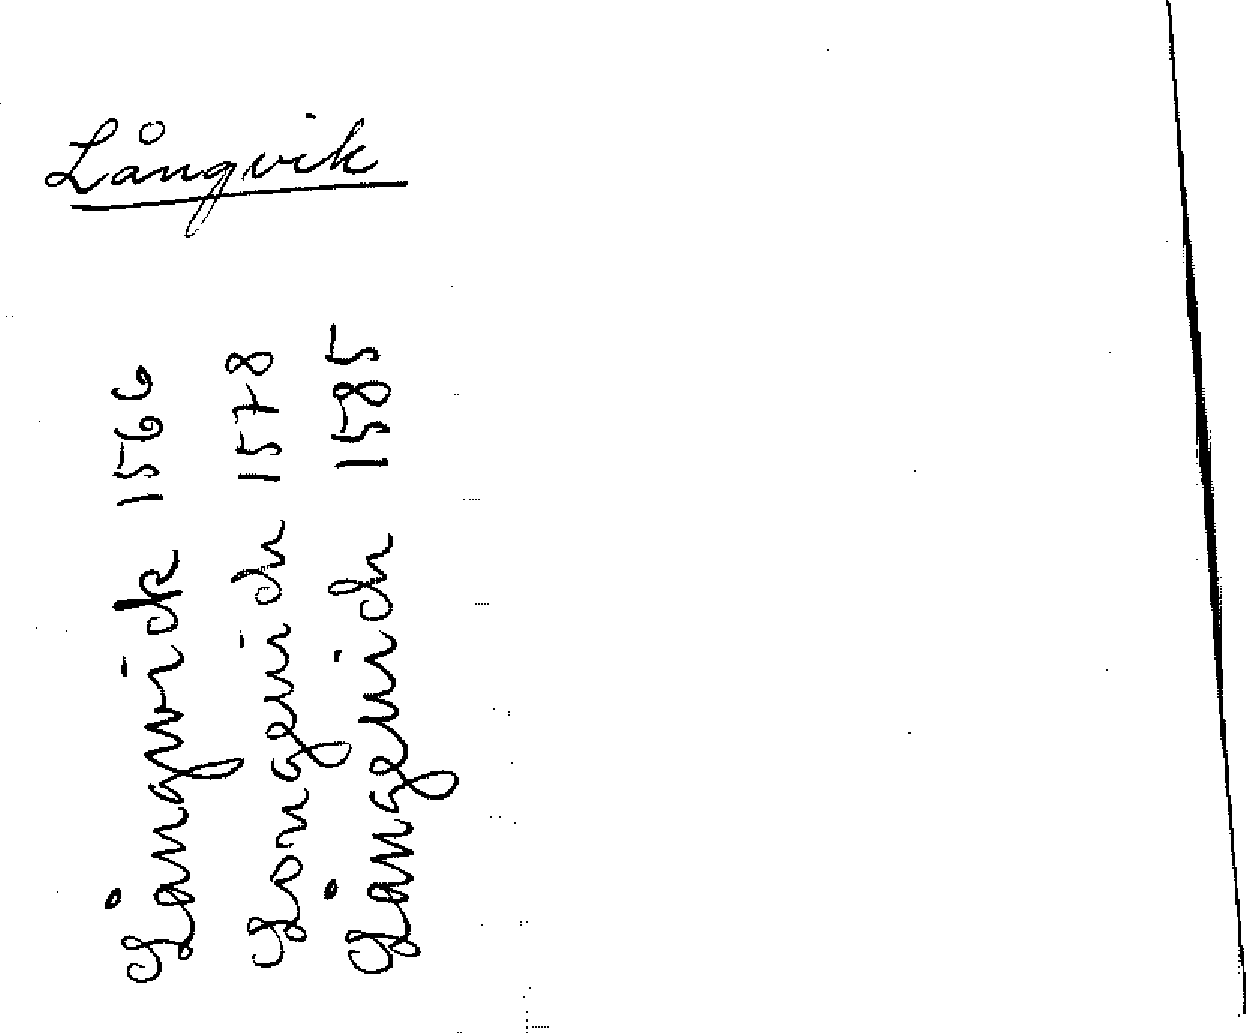 Långvik
Långwick 1566
Longeuich 1578
Långeuich 1585